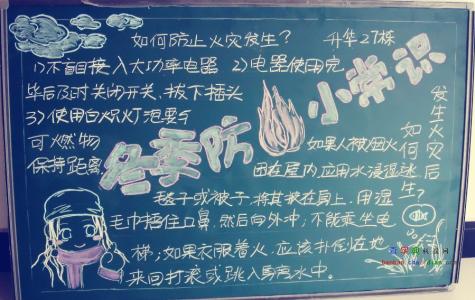 如何防止火灾发生? 升华27栋
1)不盲目接入大功率电器 2)电器使用完
毕后及时关闭开关,拔下插头
3)使用白炽灯泡要与
可燃物
保持距离
冬季防火小常识
发生火灾后如何逃生?
如果人被困火
困在屋内应用水浸湿
毯子或被子,将其披在肩上,用湿
毛巾捂住口鼻,然后向外冲;不能乘坐电
梯;如果衣服着火,应该扑倒在地
来回打滚或跳入身旁水中。